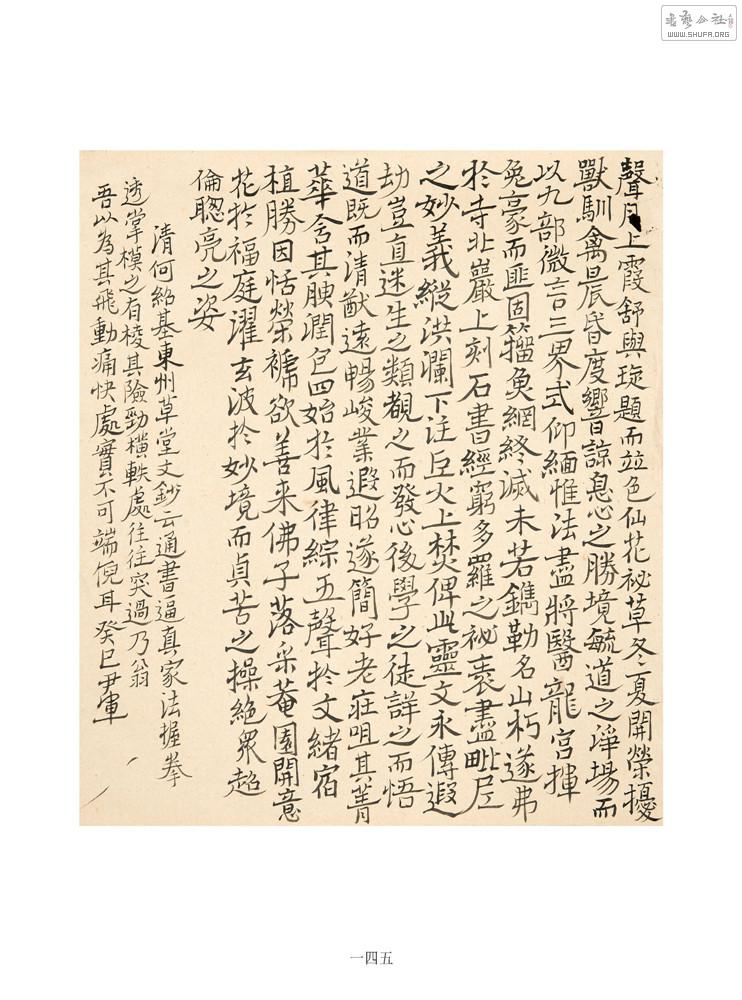 書藝公社
WWW.SHUFA.ORG
聲月上霞舒與琁題而並色仙花祕草冬夏開榮擾
獸馴禽晨昏度響諒息心之勝境毓道之淨場而
以九部微言三界式仰緬惟法盡將醫龍宮揮
兔豪而匪固籀魚網終滅未若鐫勒名山朽遂弗
於寺北巖上刻石書經窮多羅之祕袠盡毗尼
之妙義縱洪瀾下注巨火上焚俾此靈文永傳遐
劫豈直迷生之類覩之而發心後學之徒詳之而悟
道既而清猷遠暢峻業遐昭遂簡好老莊咀其菁
華含其腴潤包四始於風律綜五聲於文緒宿
植勝因恬榮褫欲善來佛子落采菴園開意
花於福庭濯玄波於妙境而貞苦之操絕衆超
倫聰亮之姿
清何紹基東州草堂文鈔云通書逼真家法握拳
透掌模之有棱其險勁橫軼處往往突過乃翁
吾以為其飛動痛快處實不可端倪耳癸巳尹暉
一四五